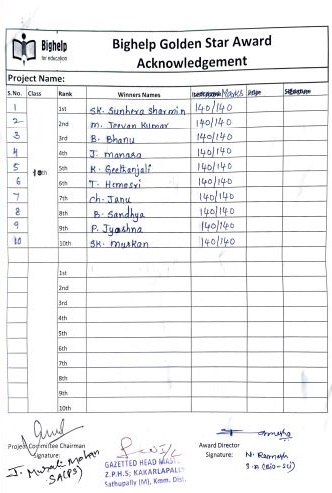 Bighelp
for education
Bighelp Golden Star Award
Acknowledgement
Project Name:
S.No. Class Rank Winners Names Marks
1 1st SK. Sunhera Sharmin 140/140
2 2nd M. Jeevan Kumar 140/140
3 3rd B. Bhanu 140/140
4 4th J. manasa 140/140
5 10th 5th K. Geethanjali 140/140
6 6th T. Himasri 140/140
7 7th Ch. Janu 140/140
8 8th B. Sandhya 140/140
9 9th P. Jyoshna 140/140
10 10th SK. Muskan 140/140
1st
2nd
3rd
4th
5th
6th
7th
8th
9th
10th
Project Committee Chairman
Signature:
J. Murali Mohan
SA(PS)
GAZETTED HEAD
Z.P.H.S; KAKARLAPALLI
Sathupally (M), Kmm. Dist.
Award Director
Signature: N. Ramesh
S.A (Bio-Sci)